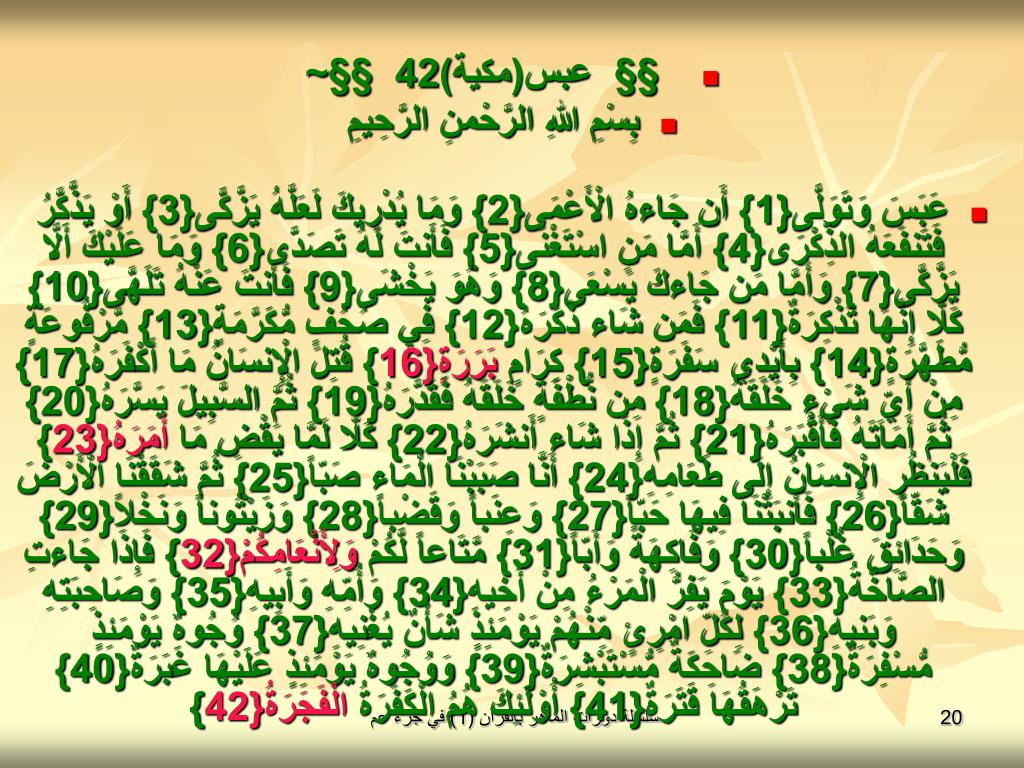 §§ عبس(مكية)42 §§~
بِسْمِ اللهِ الرَّحْمنِ الرَّحِيمِ
عَبَسَ وَتَوَلَّى{1} أَن جَاءهُ الْأَعْمَى{2} وَمَا يُدْرِيكَ لَعَلَّهُ يَزَّكَّى{3} أَوْ يَذَّكَّرُ
فَتَنفَعَهُ الذِّكْرَى{4} أَمَّا مَنِ اسْتَغْنَى{5} فَأَنتَ لَهُ تَصَدَّى{6} وَمَا عَلَيْكَ أَلَّا
يَزَّكَّى{7} وَأَمَّا مَن جَاءكَ يَسْعَى{8} وَهُوَ يَخْشَى{9} فَأَنتَ عَنْهُ تَلَهَّى{10}
كَلَّا إِنَّهَا تَذْكِرَةٌ{11} فَمَن شَاء ذَكَرَهُ{12} فِي صُحُفٍ مُّكَرَّمَةٍ{13} مَّرْفُوعَةٍ
مُّطَهَّرَةٍ{14} بِأَيْدِي سَفَرَةٍ{15} كِرَامٍ بَرَرَةٍ{16} قُتِلَ الْإِنسَانُ مَا أَكْفَرَهُ{17}
مِنْ أَيِّ شَيْءٍ خَلَقَهُ{18} مِن نُّطْفَةٍ خَلَقَهُ فَقَدَّرَهُ{19} ثُمَّ السَّبِيلَ يَسَّرَهُ{20}
ثُمَّ أَمَاتَهُ فَأَقْبَرَهُ{21} ثُمَّ إِذَا شَاء أَنشَرَهُ{22} كَلَّا لَمَّا يَقْضِ مَا أَمَرَهُ{23}
فَلْيَنظُرِ الْإِنسَانُ إِلَى طَعَامِهِ{24} أَنَّا صَبَبْنَا الْمَاء صَبّاً{25} ثُمَّ شَقَقْنَا الْأَرْضَ
شَقّاً{26} فَأَنبَتْنَا فِيهَا حَبّاً{27} وَعِنَباً وَقَضْباً{28} وَزَيْتُوناً وَنَخْلاً{29}
وَحَدَائِقَ غُلْباً{30} وَفَاكِهَةً وَأَبّاً{31} مَّتَاعاً لَّكُمْ وَلِأَنْعَامِكُمْ{32} فَإِذَا جَاءتِ
الصَّاخَّةُ{33} يَوْمَ يَفِرُّ الْمَرْءُ مِنْ أَخِيهِ{34} وَأُمِّهِ وَأَبِيهِ{35} وَصَاحِبَتِهِ
وَبَنِيهِ{36} لِكُلِّ امْرِئٍ مِّنْهُمْ يَوْمَئِذٍ شَأْنٌ يُغْنِيهِ{37} وُجُوهٌ يَوْمَئِذٍ
مُّسْفِرَةٌ{38} ضَاحِكَةٌ مُّسْتَبْشِرَةٌ{39} وَوُجُوهٌ يَوْمَئِذٍ عَلَيْهَا غَبَرَةٌ{40}
تَرْهَقُهَا قَتَرَةٌ{41} أُوْلَئِكَ هُمُ الْكَفَرَةُ الْفَجَرَةُ{42}
سلسلة دورات الماهر بالقرآن (1) في جزء عم
20